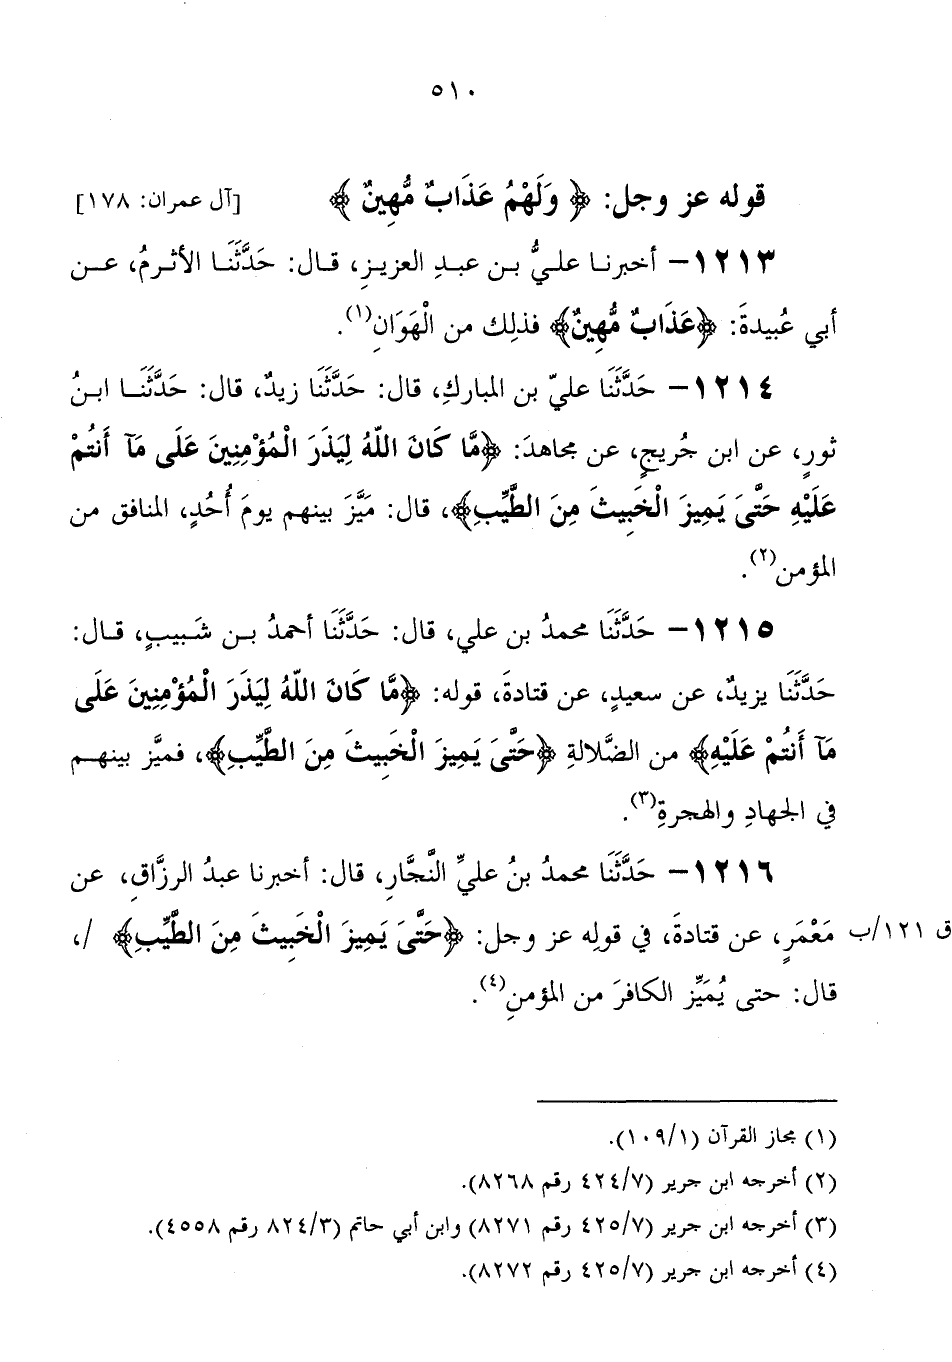 ٥١٠
قوله عز وجل: ﴿ وَلَهْمُ عَذَابٌ مُّهِينٌ ﴾ [آل عمران: ١٧٨]
١٢١٣- أخبرنـا علـيُّ بـن عبـدِ العزيـزِ، قـال: حَدَّثَنَـا الأثـرمُ، عـن
أبي عُبيدةَ: ﴿عَذَابٌ مُّهِينٌ﴾ فذلِك من الْهَوَانِ(١).
١٢١٤- حَدَّثَنَا عليّ بن المباركِ، قال: حَدَّثَنَا زيدٌ، قال: حَدَّثَنَـا ابـنُ
ثورٍ، عن ابن جُريجٍ، عن مجاهدَ: ﴿مَّا كَانَ اللّهُ لِيَذَرَ الْمُؤْمِنِينَ عَلَى مَآ أَنتُمْ
عَلَيْهِ حَتَّىَ يَمِيزَ الْخَبِيثَ مِنَ الطَّيِّبِ﴾، قال: مَيَّزَ بينهم يومَ أُحُدٍ، المنافق من
المؤمن(٢).
١٢١٥- حَدَّثَنَا محمدُ بن علي، قال: حَدَّثَنَا أحمدُ بـن شَـبيبٍ، قـال:
حَدَّثَنَا يزيدٌ، عن سعيدٍ، عن قتادةَ، قوله: ﴿مَّا كَانَ اللّهُ لِيَذَرَ الْمُؤْمِنِينَ عَلَى
مَآ أَنتُمْ عَلَيْهِ﴾ من الضَّلالةِ ﴿حَتَّىَ يَمِيزَ الْخَبِيثَ مِنَ الطَّيِّبِ﴾، فميَّز بينهـم
في الجهادِ والهجرةِ(٣).
١٢١٦- حَدَّثَنَا محمدُ بنُ عليٍّ النَّجَّارِ، قال: أخبرنا عبدُ الرزَّاقِ، عن
ق ١٢١/ب مَعْمَرٍ، عن قتادةَ، في قولِه عز وجل: ﴿حَتَّىَ يَمِيزَ الْخَبِيثَ مِنَ الطَّيِّبِ﴾ /،
قال: حتى يُمَيِّز الكافرَ من المؤمنِ(٤).
(١) مجاز القرآن (١٠٩/١).
(٢) أخرجه ابن جرير (٤٢٤/٧ رقم ٨٢٦٨).
(٣) أخرجه ابن جرير (٤٢٥/٧ رقم ٨٢٧١) وابن أبي حاتم (٨٢٤/٣ رقم ٤٥٥٨).
(٤) أخرجه ابن جرير (٤٢٥/٧ رقم ٨٢٧٢).